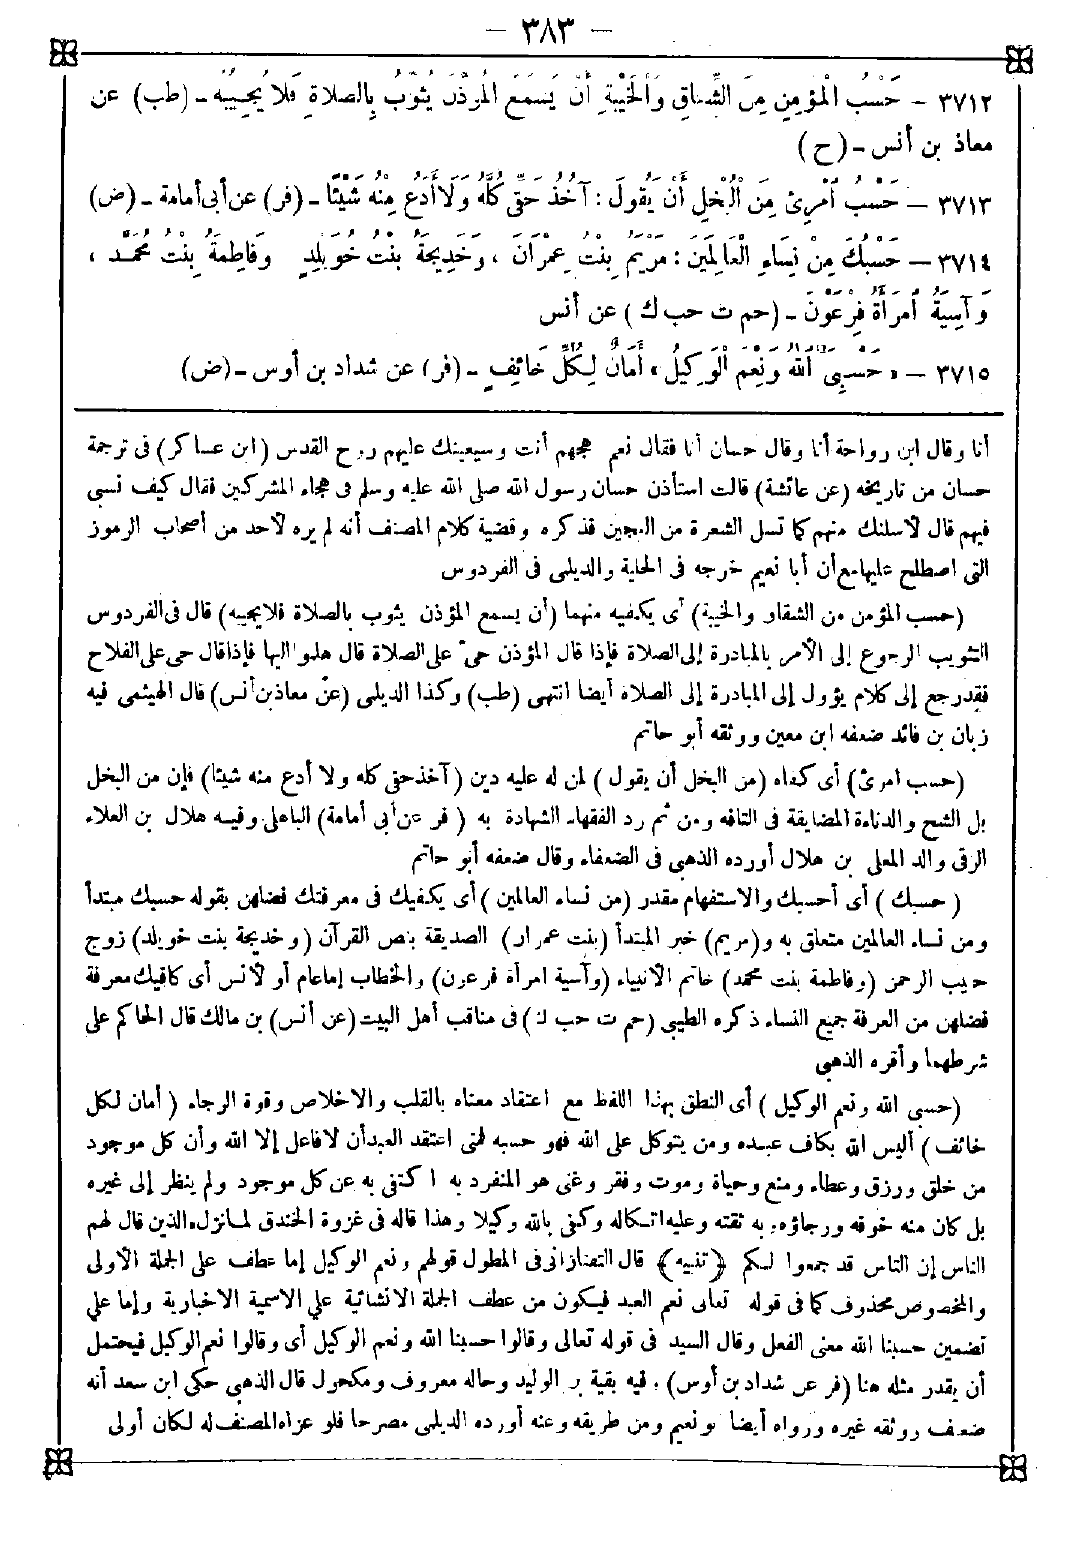 — ٣٨٣ —
٣٧١٢ — حَسْبُ الْمُؤْمِنِ مِنَ الشِّقَاقِ وَالْخَيْبَةِ أَنْ يَسْمَعَ الْمُؤَذِّنَ يُثَوِّبُ بِالصَّلَاةِ فَلَا يُجِيبُهُ ـ (طب) عن
معاذ بن أنس ـ (ح)
٣٧١٣ — حَسْبُ امْرِئٍ مِنَ الْبُخْلِ أَنْ يَقُولَ : آخُذُ حَقِّي كُلَّهُ وَلَا أَدَعُ مِنْهُ شَيْئًا ـ (فر) عن أبى أمامة ـ (ض)
٣٧١٤ — حَسْبُكَ مِنْ نِسَاءِ الْعَالَمِينَ : مَرْيَمُ بِنْتُ عِمْرَانَ ، وَخَدِيجَةُ بِنْتُ خُوَيْلِدٍ وَفَاطِمَةُ بِنْتُ مُحَمَّدٍ ،
وَآسِيَةُ امْرَأَةُ فِرْعَوْنَ ـ (حم ت حب ك) عن أنس
٣٧١٥ — « حَسْبِيَ اللّٰهُ وَنِعْمَ الْوَكِيلُ » أَمَانٌ لِكُلِّ خَائِفٍ ـ (فر) عن شداد بن أوس ـ (ض)
أنا وقال ابن رواحة أنا وقال حسان أنا فقال نعم هجهم أنت وسيعينك عليهم روح القدس (ابن عساكر) فى ترجمة
حسان من تاريخه (عن عائشة) قالت استأذن حسان رسول الله صلى الله عليه وسلم فى هجاء المشركين فقال كيف نسبى
فيهم قال لأسلنك منهم كما تسل الشعرة من العجين فذكره وقضية كلام المصنف أنه لم يره لأحد من أصحاب الرموز
التى اصطلح عليها مع أن أبا نعيم خرجه فى الحلية والديلمى فى الفردوس
(حسب المؤمن من الشقاق والخيبة) أى يكفيه منهما (أن يسمع المؤذن يثوب بالصلاة فلا يجيبه) قال فى الفردوس
التثويب الرجوع إلى الأمر بالمبادرة إلى الصلاة فإذا قال المؤذن حى على الصلاة قال هلموا إليها فإذا قال حى على الفلاح
فقد رجع إلى كلام يؤول إلى المبادرة إلى الصلاة أيضا انتهى (طب) وكذا الديلمى (عن معاذ بن أنس) قال الهيثمى فيه
زبان بن فائد ضعفه ابن معين ووثقه أبو حاتم
(حسب امرئ) أى كفاه (من البخل أن يقول) لمن له عليه دين (آخذ حقى كله ولا أدع منه شيئا) فإن من البخل
بل الشح والدناءة المضايقة فى التافه ومن ثم رد الفقهاء الشهادة به (فر عن أبى أمامة) الباهلى وفيه هلال بن العلاء
الرقى والد المعلى بن هلال أورده الذهبى فى الضعفاء وقال ضعفه أبو حاتم
(حسبك) أى أحسبك والاستفهام مقدر (من نساء العالمين) أى يكفيك فى معرفتك فضلهن بقوله حسبك مبتدأ
ومن نساء العالمين متعلق به و(مريم) خبر المبتدأ (بنت عمران) الصديقة بنص القرآن (وخديجة بنت خويلد) زوج
حبيب الرحمن (وفاطمة بنت محمد) خاتم الأنبياء (وآسية امرأة فرعون) والخطاب إما عام أو لأنس أى كافيك معرفة
فضلهن من العرفة جميع النساء ذكره الطيبى (حم ت حب ك) فى مناقب أهل البيت (عن أنس) بن مالك قال الحاكم على
شرطهما وأقره الذهبى
(حسبى الله ونعم الوكيل) أى النطق بهذا اللفظ مع اعتقاد معناه بالقلب والاخلاص وقوة الرجاء (أمان لكل
خائف) أليس الله بكاف عبده ومن يتوكل على الله فهو حسبه فمتى اعتقد العبد أن لا فاعل إلا الله وأن كل موجود
من خلق ورزق وعطاء ومنع وحياة وموت وفقر وغنى هو المنفرد به اكتفى به عن كل موجود ولم ينظر إلى غيره
بل كان منه خوفه ورجاؤه وبه ثقته وعليه اتكاله وكفى بالله وكيلا وهذا قاله فى غزوة الخندق لما نزله الذين قال لهم
الناس إن الناس قد جمعوا لكم ﴿تنبيه﴾ قال التفتازانى فى المطول قولهم ونعم الوكيل إما عطف على الجملة الأولى
والمخصوص محذوف كما فى قوله تعالى نعم العبد فيكون من عطف الجملة الانشائية على الاسمية الاخبارية وإما على
تضمين حسبنا الله معنى الفعل وقال السيد فى قوله تعالى وقالوا حسبنا الله ونعم الوكيل أى وقالوا نعم الوكيل فيحتمل
أن يقدر مثله هنا (فر عن شداد بن أوس) وفيه بقية بن الوليد وحاله معروف ومكحول قال الذهبي حكى ابن سعد أنه
ضعف ووثقه غيره ورواه أيضا أبو نعيم ومن طريقه وعنه أورده الديلمى مصرحا فلو عزاه المصنف له لكان أولى